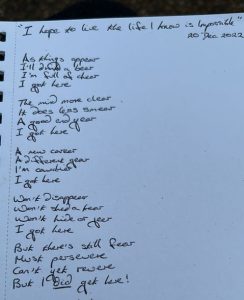 "I hope to live the life I know is impossible"
20 Dec 2022
As things appear
I'll a bear
I'm full of cheer
I got here
The mind more clear
It does less smear
A good end year
I got here
A new career
A different gear
I'm
I got here
Won't disappear
Won't shed a tear
Won't hide or jeer
I got here
But there's still fear
Must persevere
Can't yet revere
But I Did get here!